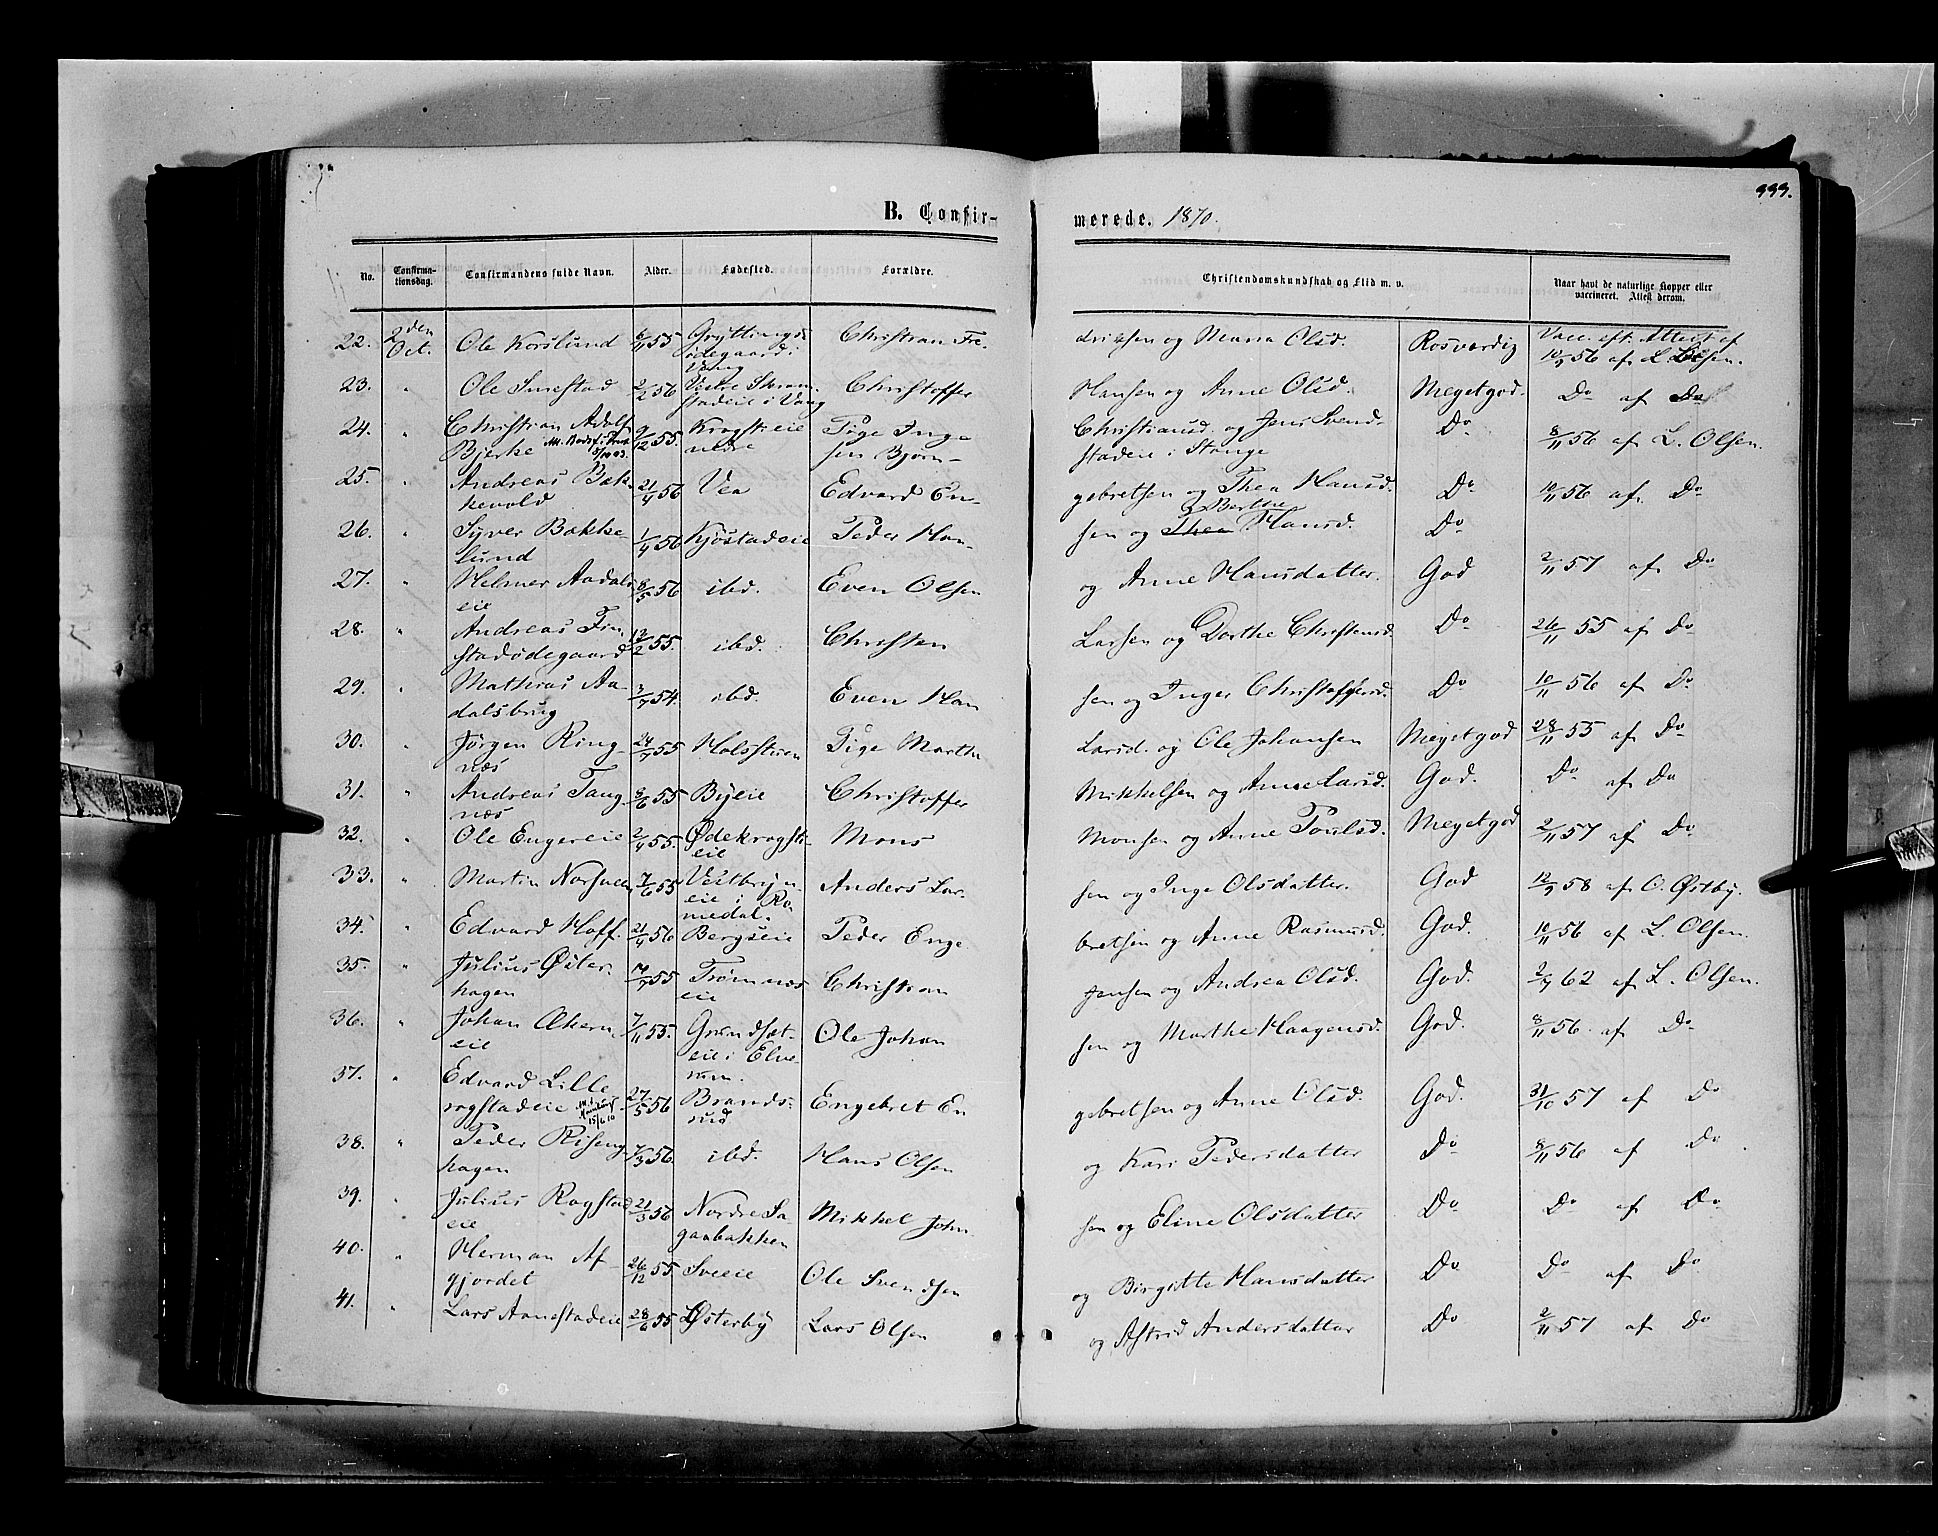 333.
B. Confir-
merede. 1870.
No.
Confirma-
tionsdag.
Confirmandens fulde Navn.
Alder.
Fødested.
Forældre.
Christendomskundskab og Flid m. v.
Naar havt de naturlige Kopper eller
vaccineret. Attest derom.
22. 2den Oct. Ole Korslund 6/11 55 Gryttings-
ødegaard i
Vang
Christian Fre-
driksen og Maria Olsd. Rosværdig Vacc. eft. Attest af
10/9 56 af L. Olsen.
23. " Ole Smestad 2/2 56 Vestre Skram-
stadeie i Vang
Christoffer
Hansen og Anne Olsd. Megetgod. Do af Do
24. " Christian Adolf
Bjerke
9/12 55. Krogstieie
nedre
Pige Inge
Christiansd. og Jens Svend-
sen Bjørn-
stadeie i Stange
Do 8/11 56 af L. Olsen.
25. " Andreas Bæk-
kevold
21/4 56 Vea Edvard En-
gebretsen og Thea Hansd. Do 10/11 56 af Do
26. " Syver Bakke
lund
1/4 56 Kjøstadeie Peder Han-
Berthe
sen og Thea Hansd. Do
27. " Helmer Aadals
eie
8/5 56 ibd. Even Olsen
og Anne Hansdatter. God 2/11 57 af Do
28. " Andreas Fin-
stadødegaard
13/2 55. ibd. Christen
Larsen og Dorthe Christensd. Do 26/11 55 af Do
29. " Mathias Aa-
dalsbrug
3/7 54. ibd. Even Han
sen og Inger Christoffersd. Do 10/11 56 af Do
30. " Jørgen Ring-
næs
24/7 55 Holsstuen Pige Marthe
Larsd. og Ole Johansen Megetgod 28/11 55 af Do
31. " Andreas Tang
næs
8/6 55 Byeie Christoffer
Mikkelsen og Anne Larsd. God. Do af Do
32. " Ole Engereie 2/4 55. Ødekrogsti-
eie
Mons
Monsen og Anne Poulsd. Megetgod 2/11 57 af Do
33. " Martin Norsveen 7/6 55 Vestbyn-
eie i Ro-
medal.
Anders Lar-
sen og Inge Olsdatter. God 12/9 58 af O. Østby.
34. " Edvard Hoff. 21/4 56 Bergseie Peder Enge
bretsen og Anne Rasmusd. God. 10/11 56 af L. Olsen.
35. " Julius Øster-
hagen
14/7 55 Trømnæs
eie
Christian
Jensen og Andrea Olsd. God. 2/7 62 af L. Olsen.
36. " Johan Ekern
eie
7/11 55. Grundsæt-
eie i Elve-
rum.
Ole Johan
sen og Marthe Haagensd. God. 8/11 56. af Do
37. " Edvard Lille
rogstadeie
27/5 56 Brands-
rud
Engebret En
gebretsen og Anne Olsd. God. 31/10 57 af Do
38. " Peder Riseng
hagen
7/3 56. ibd. Hans Olsen
og Kari Pedersdatter Do 8/11 56 af Do
39. " Julius Rogstad
eie
21/3 56 Nordre Sa-
gaabakken
Mikkel John
sen og Eline Olsdatter Do Do af Do
40. " Herman Af-
gjordet
26/12 55 Sveeie Ole Svendsen
og Birgitte Hansdatter Do Do af Do
41. " Lars Aanestadeie 28/6 55 Østerby Lars Olsen
og Astrid Andersdatter Do 2/11 57 af Do